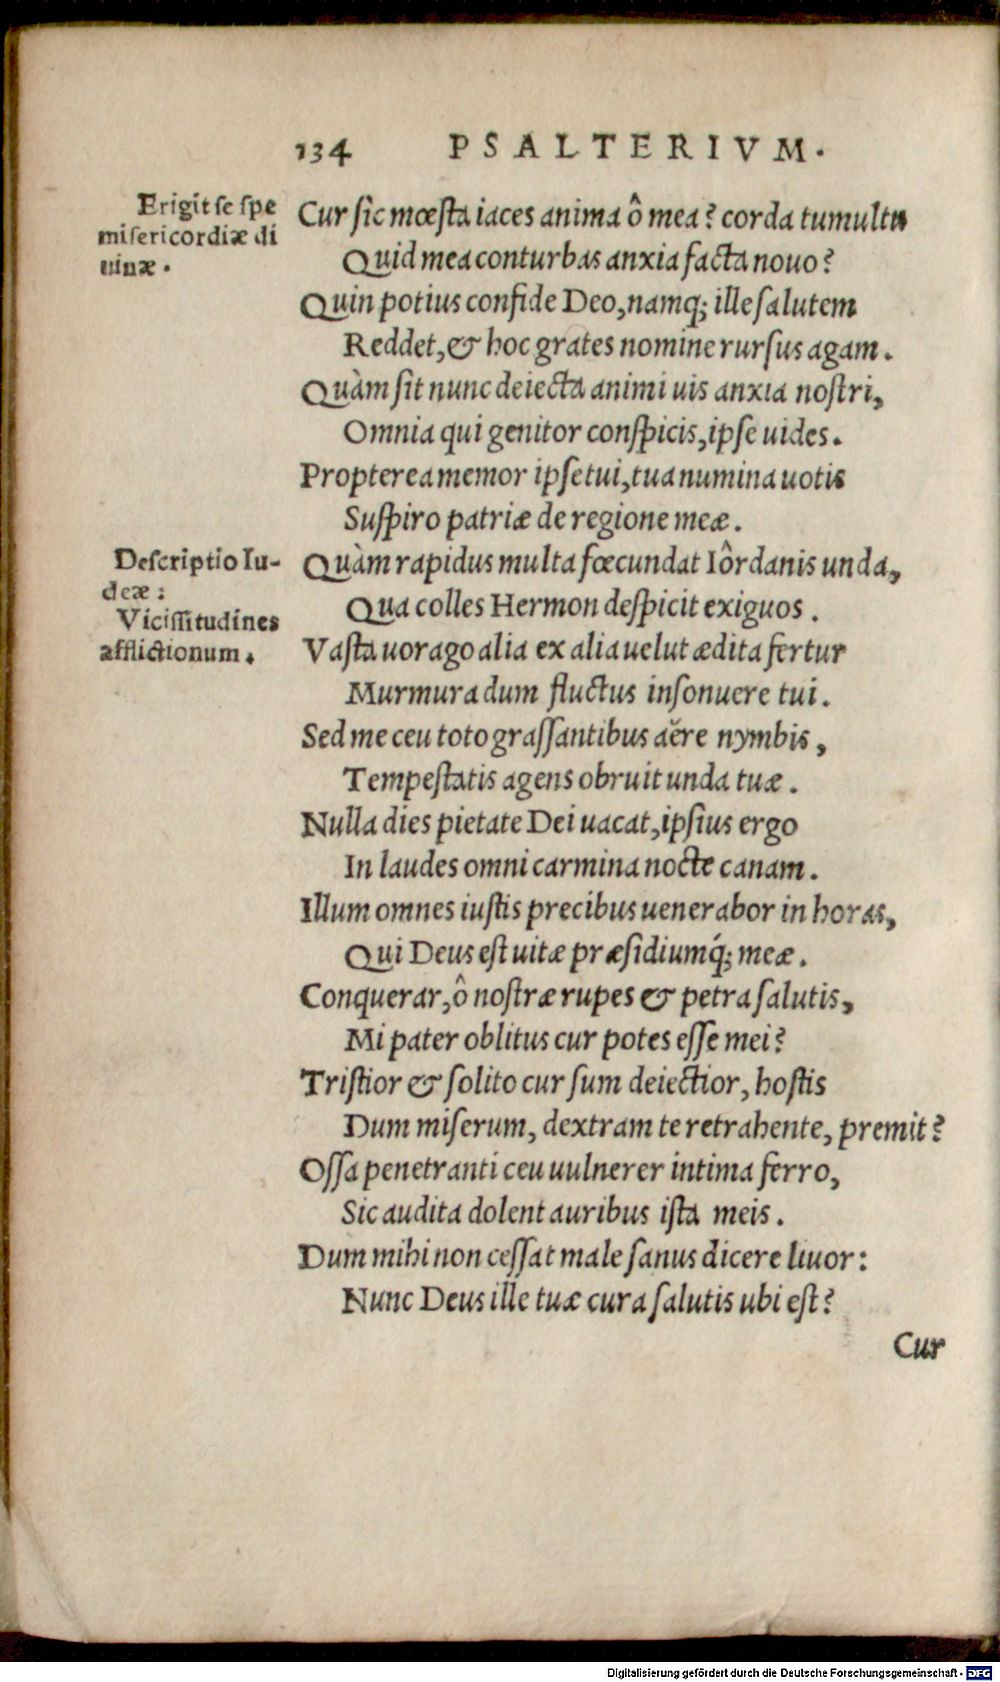 134 PSALTERIVM.
Erigit se spe
misericordiæ di
uinæ.
Cur sic mœsta iaces anima ô mea? corda tumultu
Quid mea conturbas anxia facta nouo?
Quin potius confide Deo, namq; ille salutem
Reddet, & hoc grates nomine rursus agam.
Quàm sit nunc deiecta animi uis anxia nostri,
Omnia qui genitor conspicis, ipse uides.
Propterea memor ipse tui, tua numina uotis
Suspiro patriæ de regione meæ.
Descriptio Iu-
deæ:
Vicissitudines
afflictionum.
Quàm rapidus multa fœcundat Iôrdanis unda,
Qua colles Hermon despicit exiguos.
Vasta uorago alia ex alia uelut ædita fertur
Murmura dum fluctus insonuere tui.
Sed me ceu toto grassantibus aëre nymbis,
Tempestatis agens obruit unda tuæ.
Nulla dies pietate Dei uacat, ipsius ergo
In laudes omni carmina nocte canam.
Illum omnes iustis precibus uenerabor in horas,
Qui Deus est uitæ præsidiumq́; meæ.
Conquerar, ô nostræ rupes & petra salutis,
Mi pater oblitus cur potes esse mei?
Tristior & solito cur sum deiectior, hostis
Dum miserum, dextram te retrahente, premit?
Ossa penetranti ceu uulnerer intima ferro,
Sic audita dolent auribus ista meis.
Dum mihi non cessat male sanus dicere liuor:
Nunc Deus ille tuæ cura salutis ubi est?
Cur
Digitalisierung gefördert durch die Deutsche Forschungsgemeinschaft - DFG